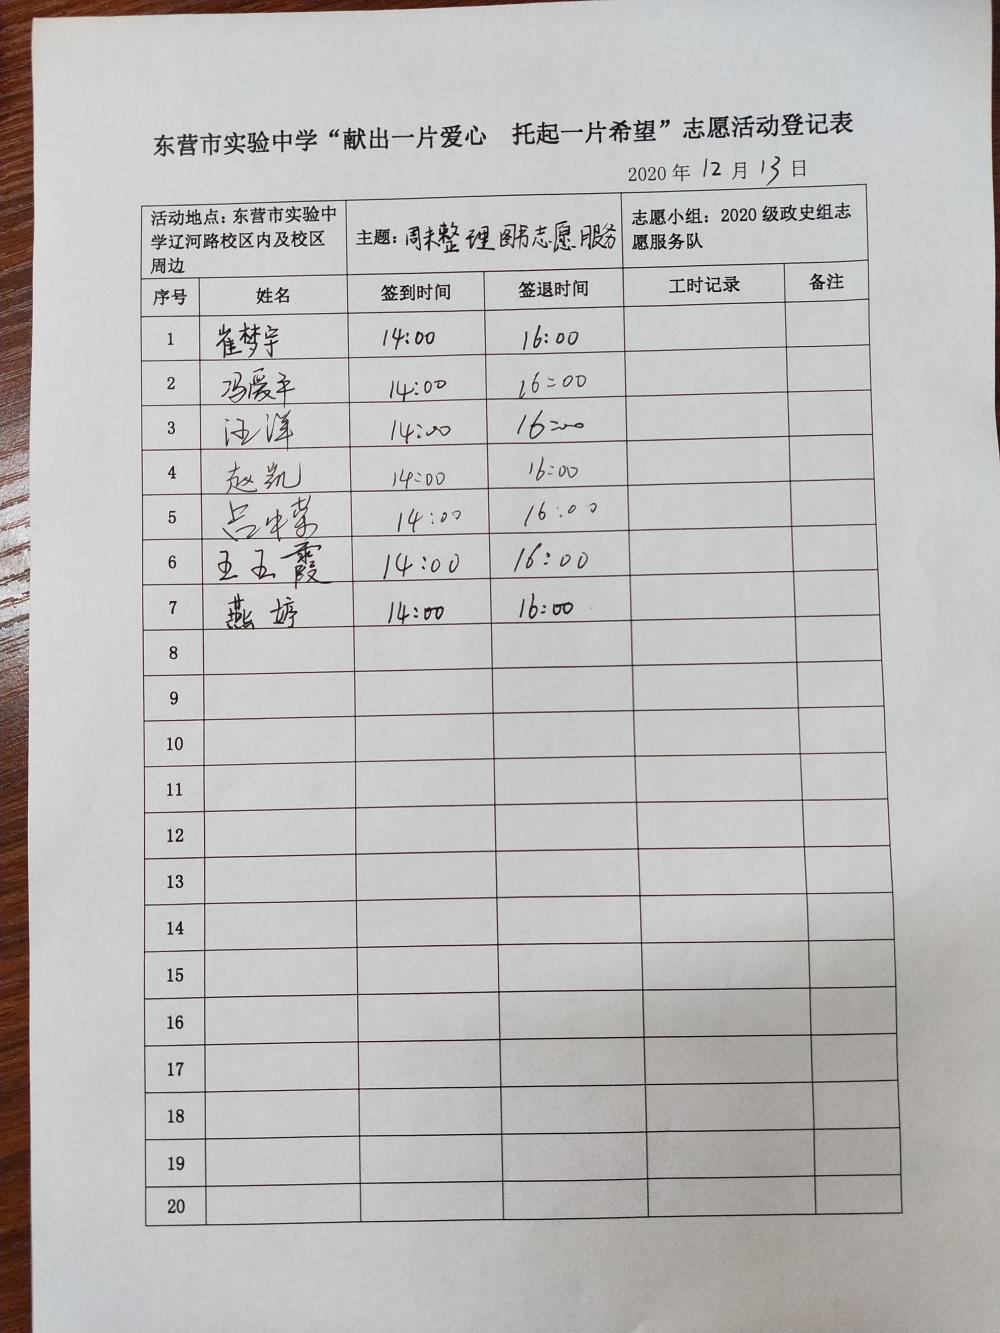 东营市实验中学“献出一片爱心 托起一片希望”志愿活动登记表
2020 年 12 月 13 日
活动地点：东营市实验中
学辽河路校区内及校区
周边
主题：周末整理图书志愿服务
志愿小组：2020 级政史组志
愿服务队
序号 姓名 签到时间 签退时间 工时记录 备注
1 崔梦宇 14:00 16:00
2 冯爱平 14:00 16:00
3 汪洋 14:00 16:00
4 赵凯 14:00 16:00
5 吕中荣 14:00 16:00
6 王玉霞 14:00 16:00
7 燕婷 14:00 16:00
8
9
10
11
12
13
14
15
16
17
18
19
20